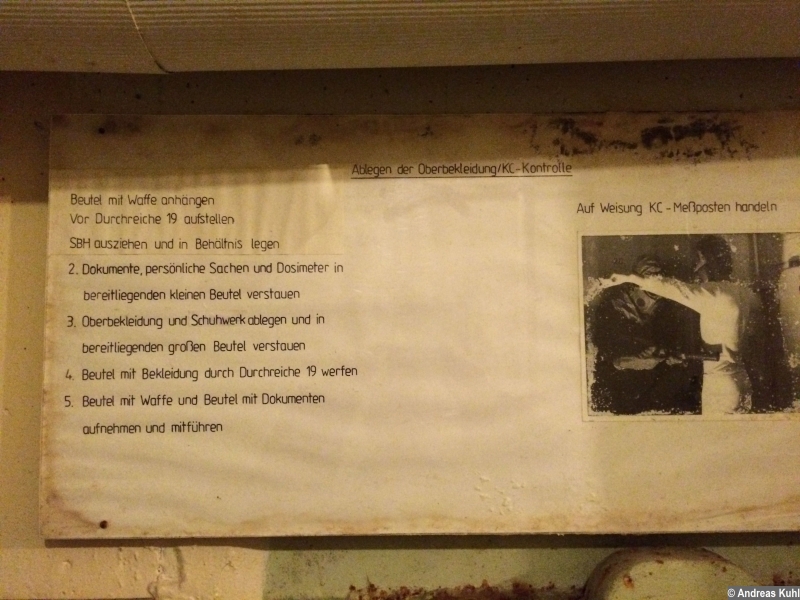 Ablegen der Oberbekleidung/KC-Kontrolle
Beutel mit Waffe anhängen
Vor Durchreiche 19 aufstellen
SBH ausziehen und in Behältnis legen
2. Dokumente, persönliche Sachen und Dosimeter in
bereitliegenden kleinen Beutel verstauen
3. Oberbekleidung und Schuhwerk ablegen und in
bereitliegenden großen Beutel verstauen
4. Beutel mit Bekleidung durch Durchreiche 19 werfen
5. Beutel mit Waffe und Beutel mit Dokumenten
aufnehmen und mitführen
Auf Weisung KC-Meßposten handeln
© Andreas Kuhl